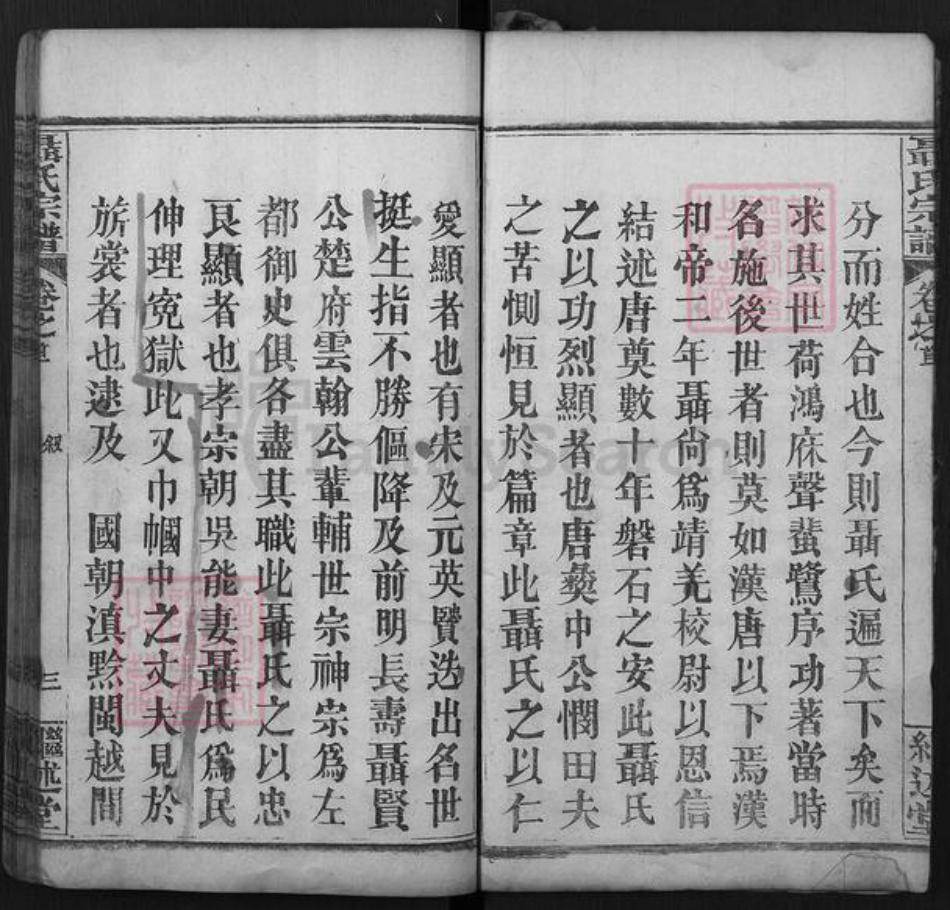 聶氏宗譜
卷之首
分而姓合也今則聶氏遍天下矣而
求其世荷鴻庥聲蜚鷺序功著當時
名施後世者則莫如漢唐以下焉漢
和帝二年聶尙爲靖羌校尉以恩信
結述唐奠數十年磐石之安此聶氏
之以功烈顯者也唐彜中公憫田夫
之苦惻恒見於篇章此聶氏之以仁
愛顯者也有宋及元英賢迭出名世
挺生指不勝傴降及前明長壽聶賢
公楚府雲翰公輩輔世宗神宗爲左
都御史俱各盡其職此聶氏之以忠
艮顯者也孝宗朝吳能妻聶氏爲民
伸理寃獄此又巾幗中之丈夫見於
旂裳者也逮及　國朝滇黔閩越間
聶氏宗譜
卷之首
叙
三
繼述堂